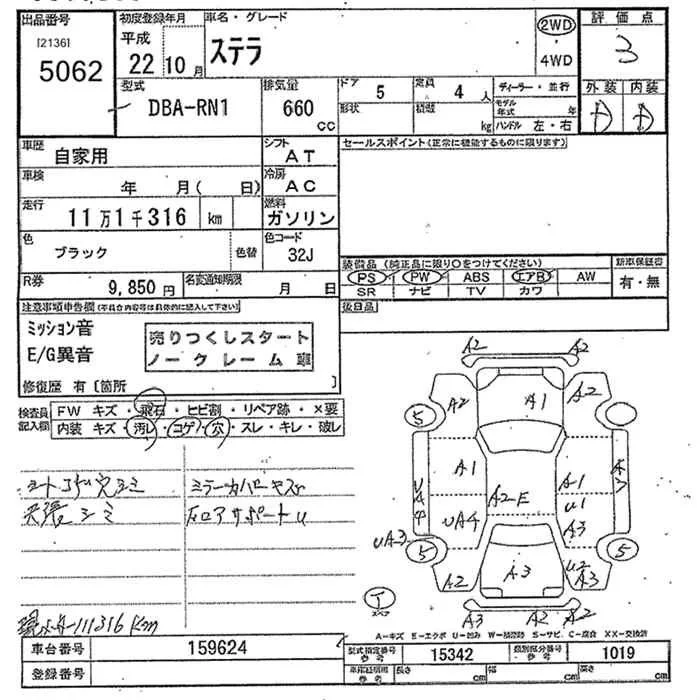 出品番号 初度登録年月 車名・グレード 評価点
[2136] 平成 ステラ 2WD 3
5062 22年10月 4WD
型式 排気量 ドア 5 定員 4人 ディーラー・並行 外装 内装
DBA-RN1 660cc 形状 積載 kg モデル年式 年 ハンドル 左・右 D D
車歴 自家用 シフト AT セールスポイント(正常に機能するものに限ります)
車検 年 月( 日) 冷房 AC
走行 11万1千316 km 燃料 ガソリン
色 ブラック 色替 色コード 32J
装備品(純正品に限り○をつけてください) 新車保証書
R券 9,850円 名変通知期限 月 日 PS PW ABS エアB AW 有・無
SR ナビ TV カワ
注意事項申告欄(不具合内容等は具体的に記入して下さい) 後日品
ミッション音 売りつくしスタート
E/G異音 ノークレーム車
修復歴 有〔箇所 〕
検査員記入欄 FW キズ・飛石・ヒビ割・リペア跡・×要
内装 キズ・汚レ・コゲ・穴・スレ・キレ・破レ
シートコゲ穴シミ ミラーカバーキズ
天張シミ
111316Km
A2 A2
A2 A2
5 A1
A1 A1
UA4 A2E U1
UA4 A3
UA3 5 5
A2 A3 U2 A3
T スペア
A3 A2 A2
A-キズ E-エクボ U-凹み W-補修跡 S-サビ C-腐食 XX-交換済
車台番号 159624 型式指定番号 参考 15342 類別区分番号 参考 1019
登録番号 車庫証明用 参考 長さ cm 幅 cm 高さ cm